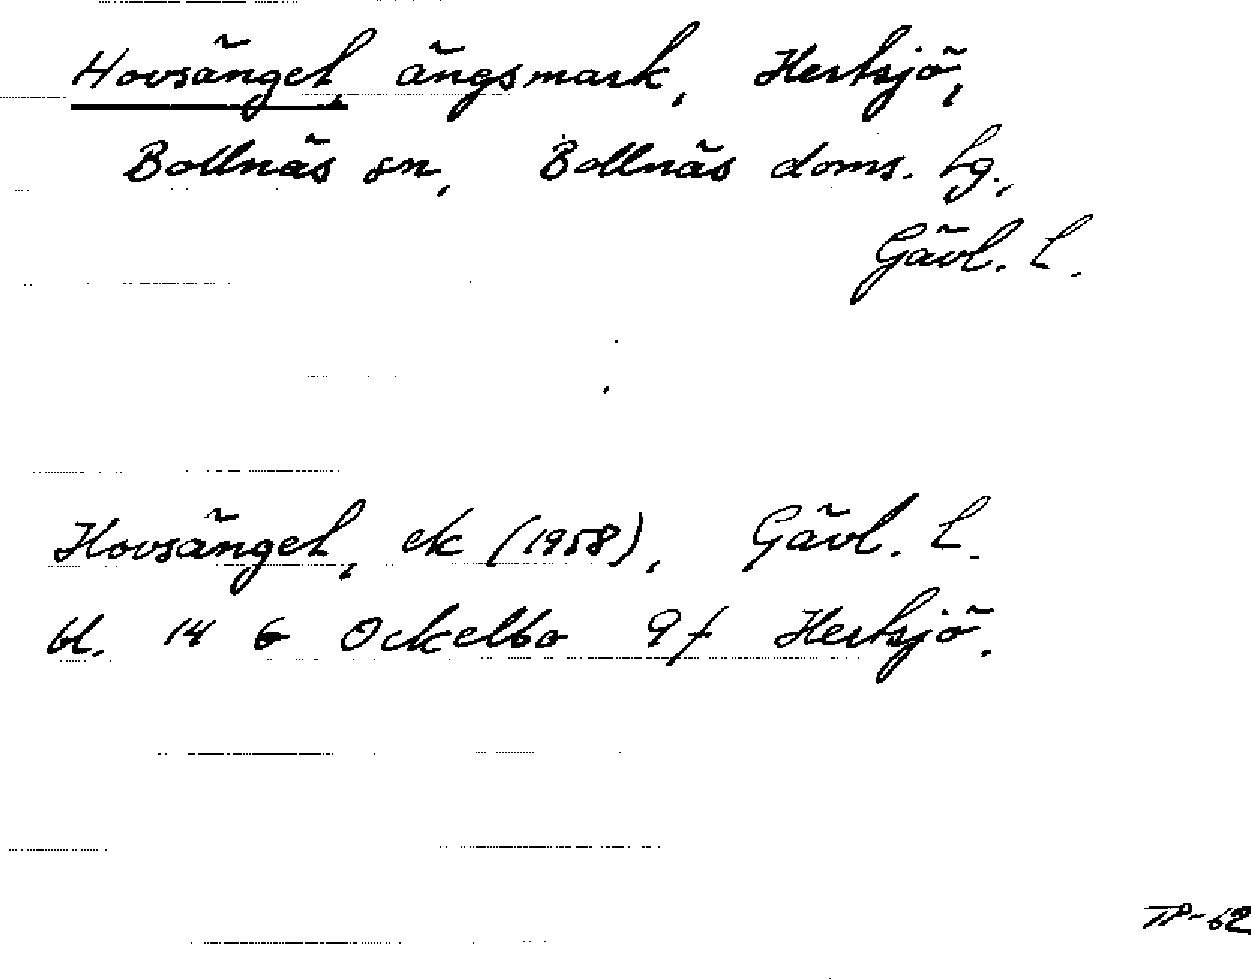 Hovsänget, ängsmark, Hertsjö,
Bollnäs sn, Bollnäs doms. lg.,
Gävl. L.
Hovsänget, ek (1958), Gävl. L.
bl. 14 G Ockelbo 9f Hertsjö.
TP-62